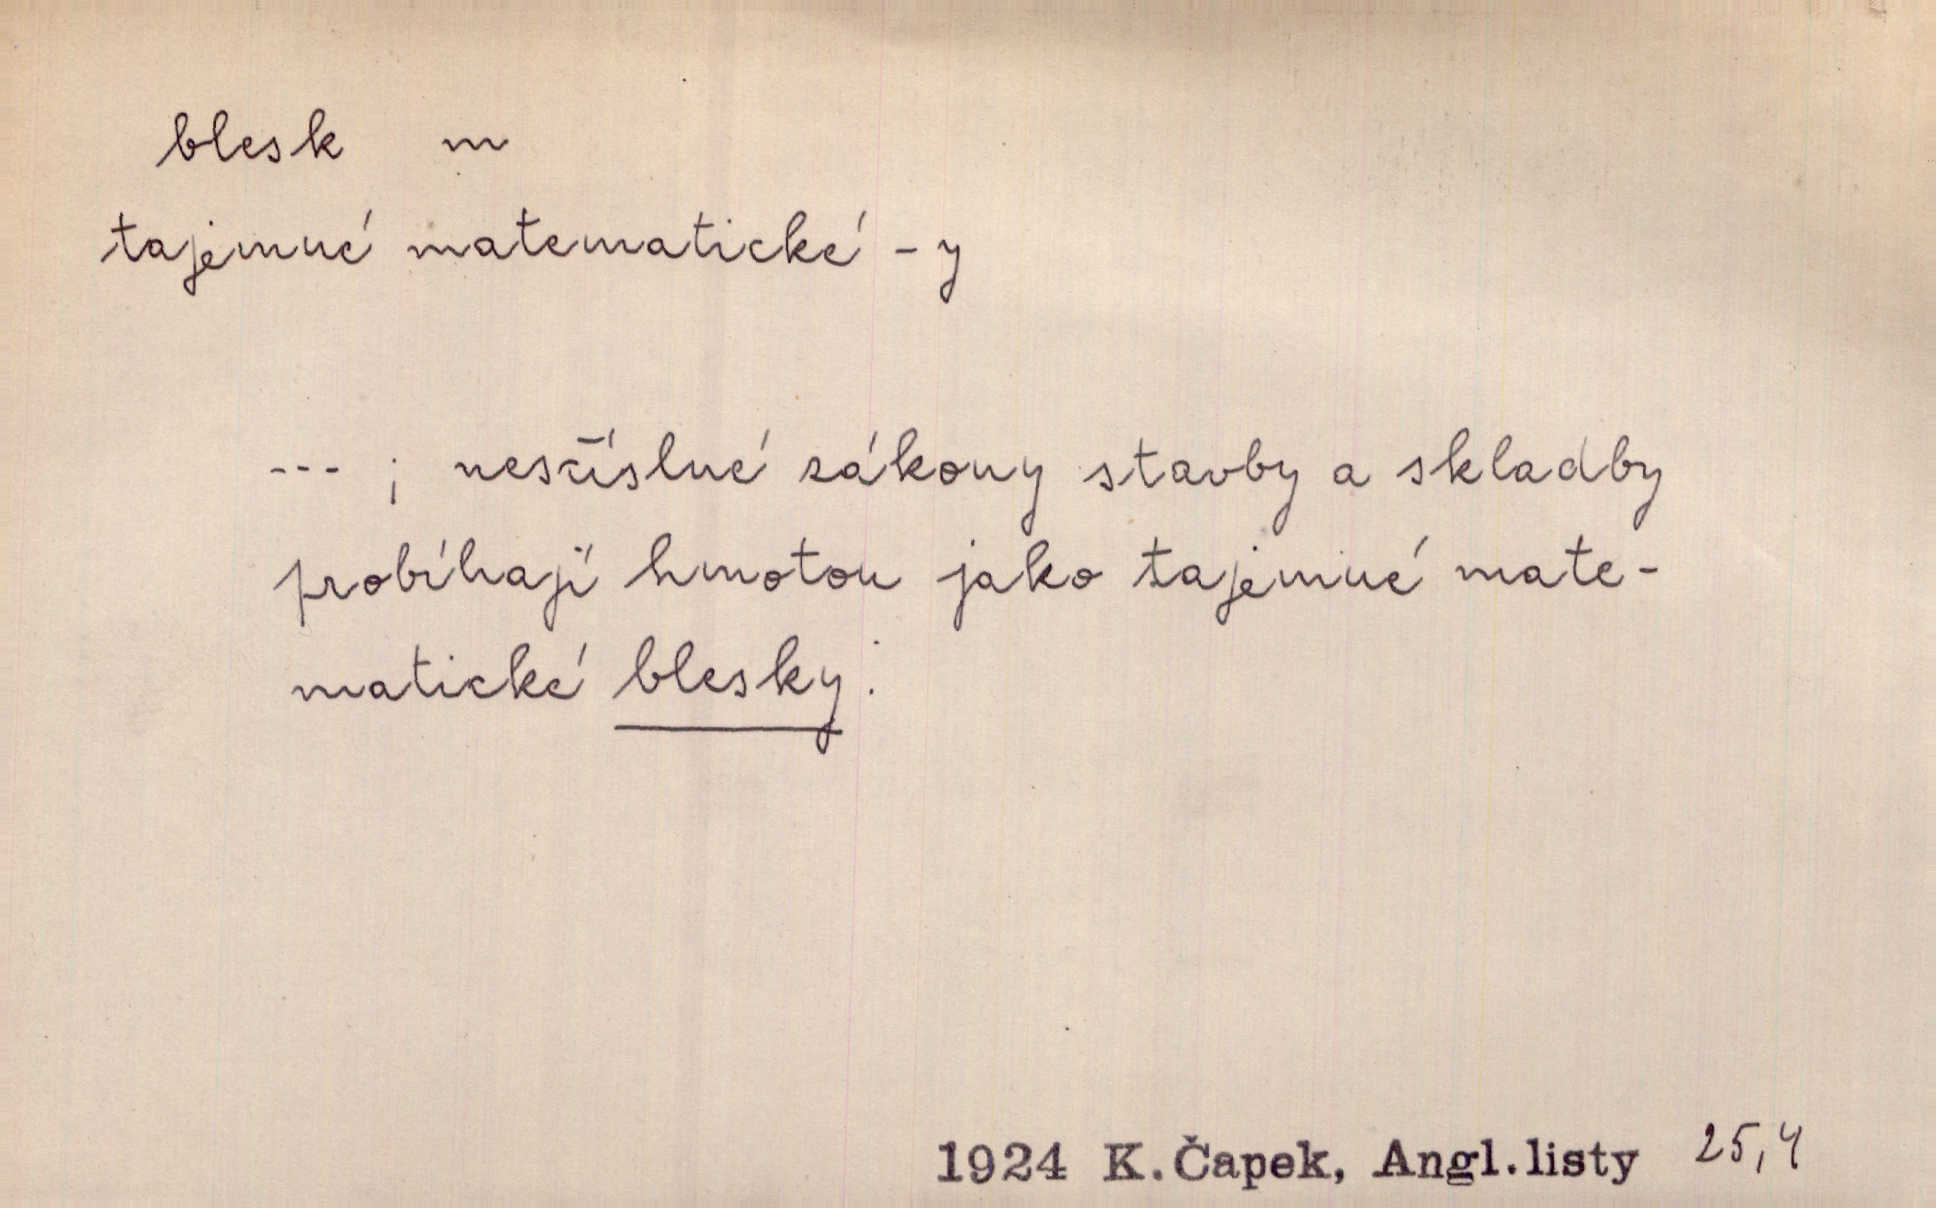 blesk m
tajemné matematické -y
--- ; nesčíslné zákony stavby a skladby
probíhají hmotou jako tajemné mate-
matické blesky:
1924 K. Čapek, Angl. listy 25,4